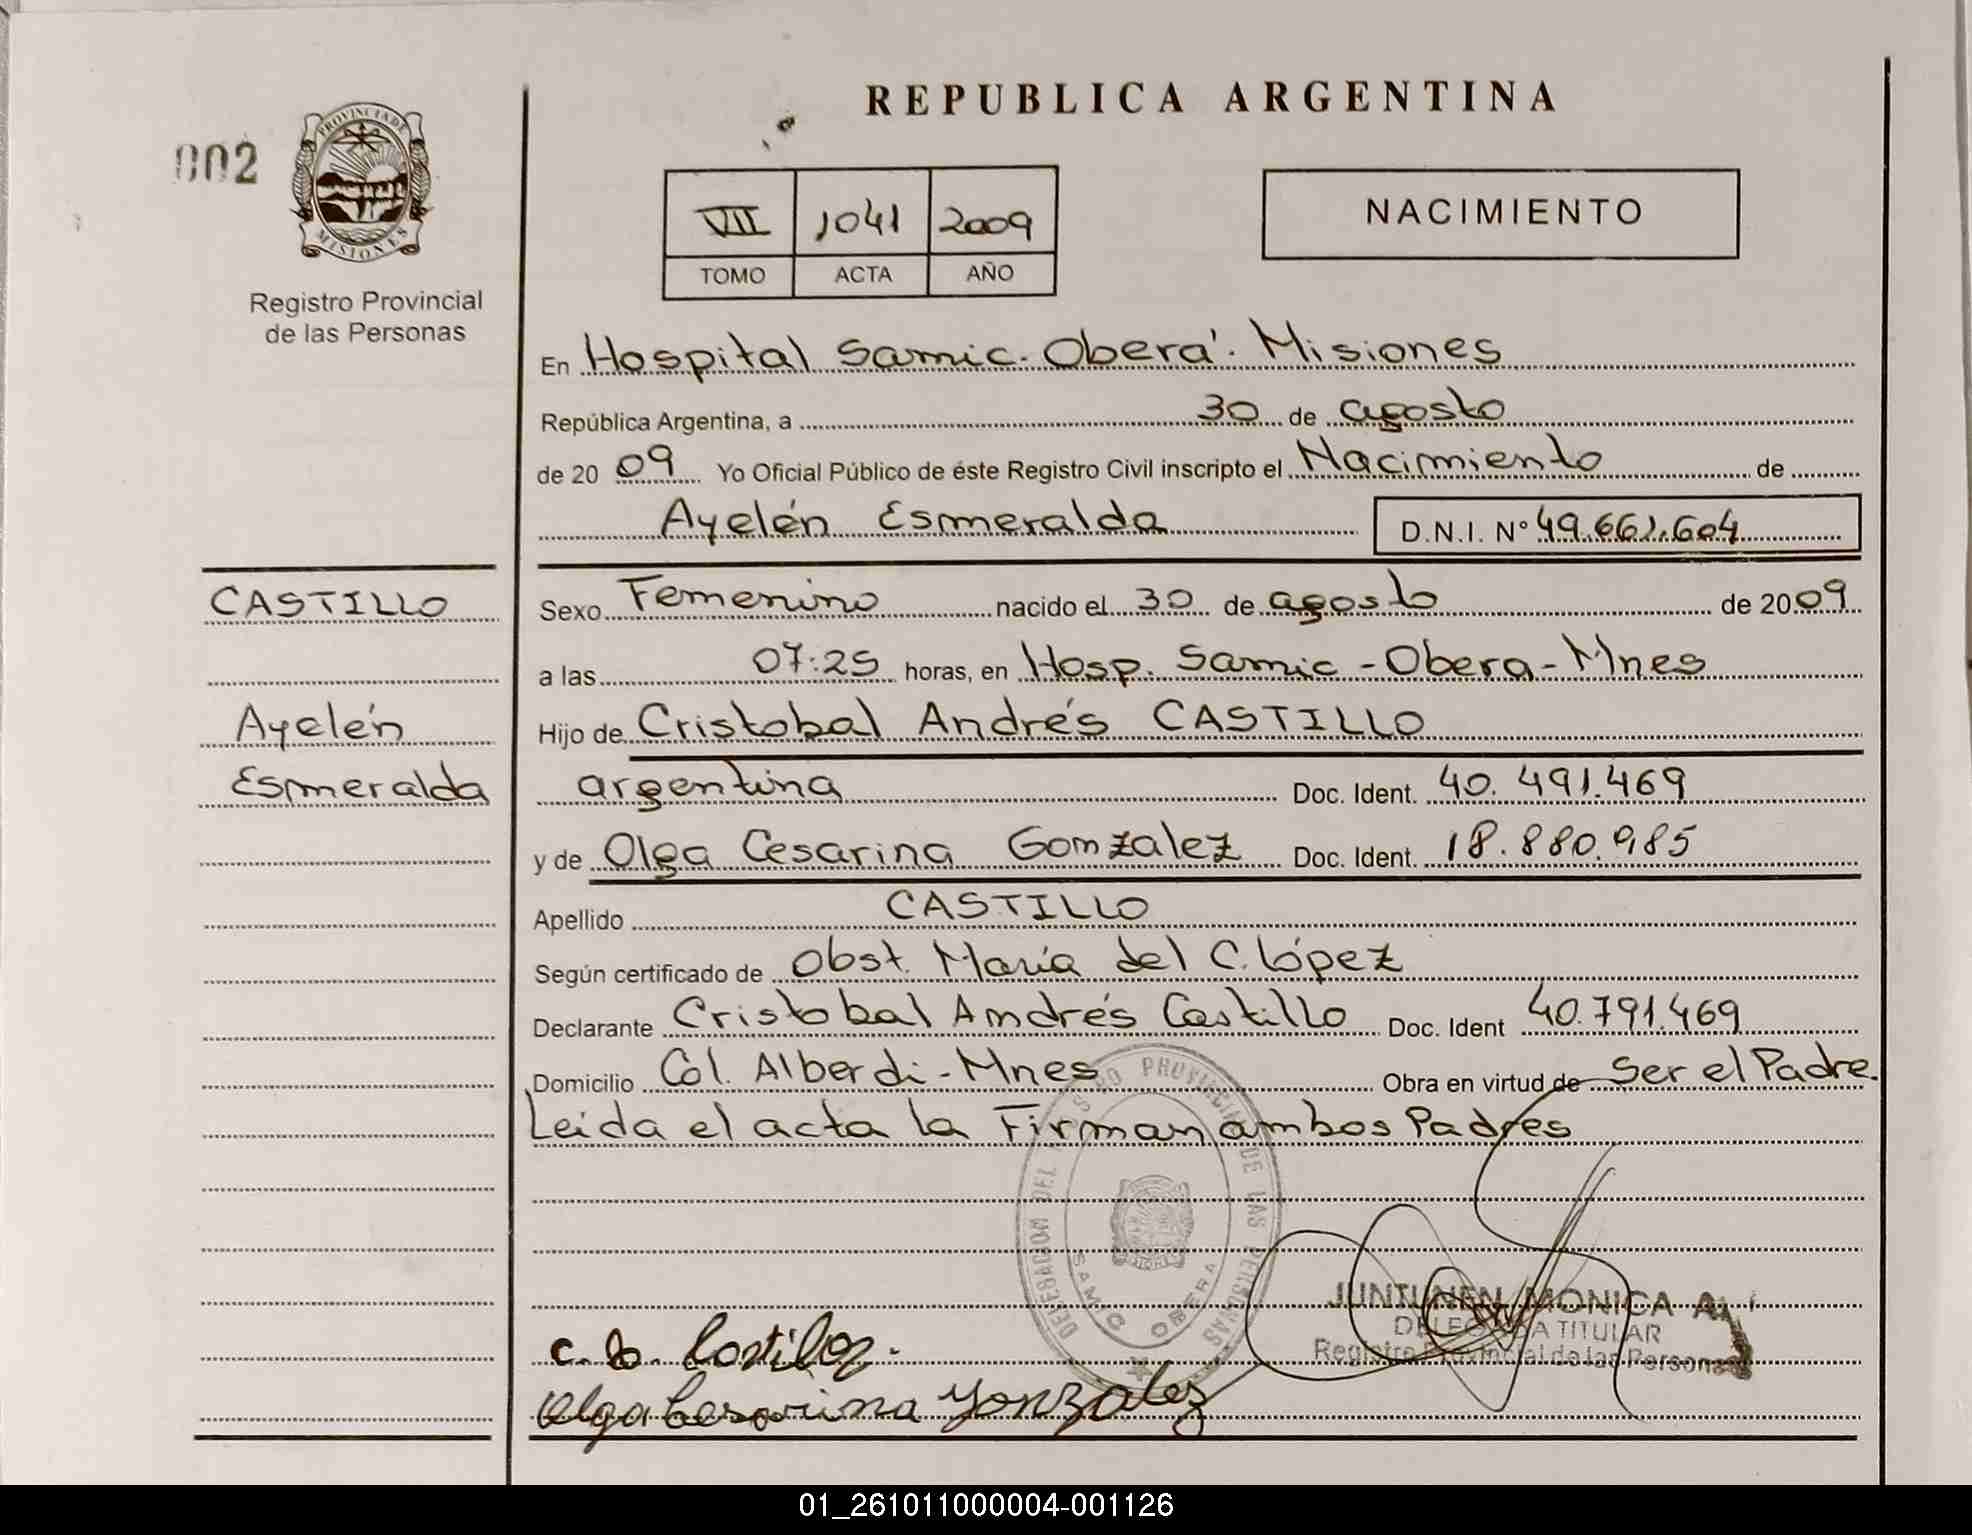 REPUBLICA ARGENTINA
002
PROVINCIA DE MISIONES
Registro Provincial
de las Personas
VII 1041 2009
TOMO ACTA AÑO
NACIMIENTO
En Hospital Samic. Oberá. Misiones
República Argentina, a 30 de agosto
de 20 09 Yo Oficial Público de éste Registro Civil inscripto el Nacimiento de
Ayelén Esmeralda D.N.I. Nº 49.661.604
CASTILLO
Ayelén
Esmeralda
Sexo Femenino nacido el 30 de agosto de 20 09
a las 07:25 horas, en Hosp. Samic - Obera - Mnes
Hijo de Cristobal Andrés CASTILLO
argentina Doc. Ident. 40.491.469
y de Olga Cesarina Gonzalez Doc. Ident. 18.880.985
Apellido CASTILLO
Según certificado de Obst. María del C. López
Declarante Cristobal Andrés Castillo Doc. Ident 40.791.469
Domicilio Col. Alberdi - Mnes Obra en virtud de Ser el Padre.
Leida el acta la Firman ambos Padres
PROVINCIAL DE LAS PERSONAS
SAMIC OBERA
JUNTUNEN MONICA A.
DELEGADA TITULAR
Registro Provincial de las Personas
Olga Cesarina Gonzalez
01_261011000004-001126